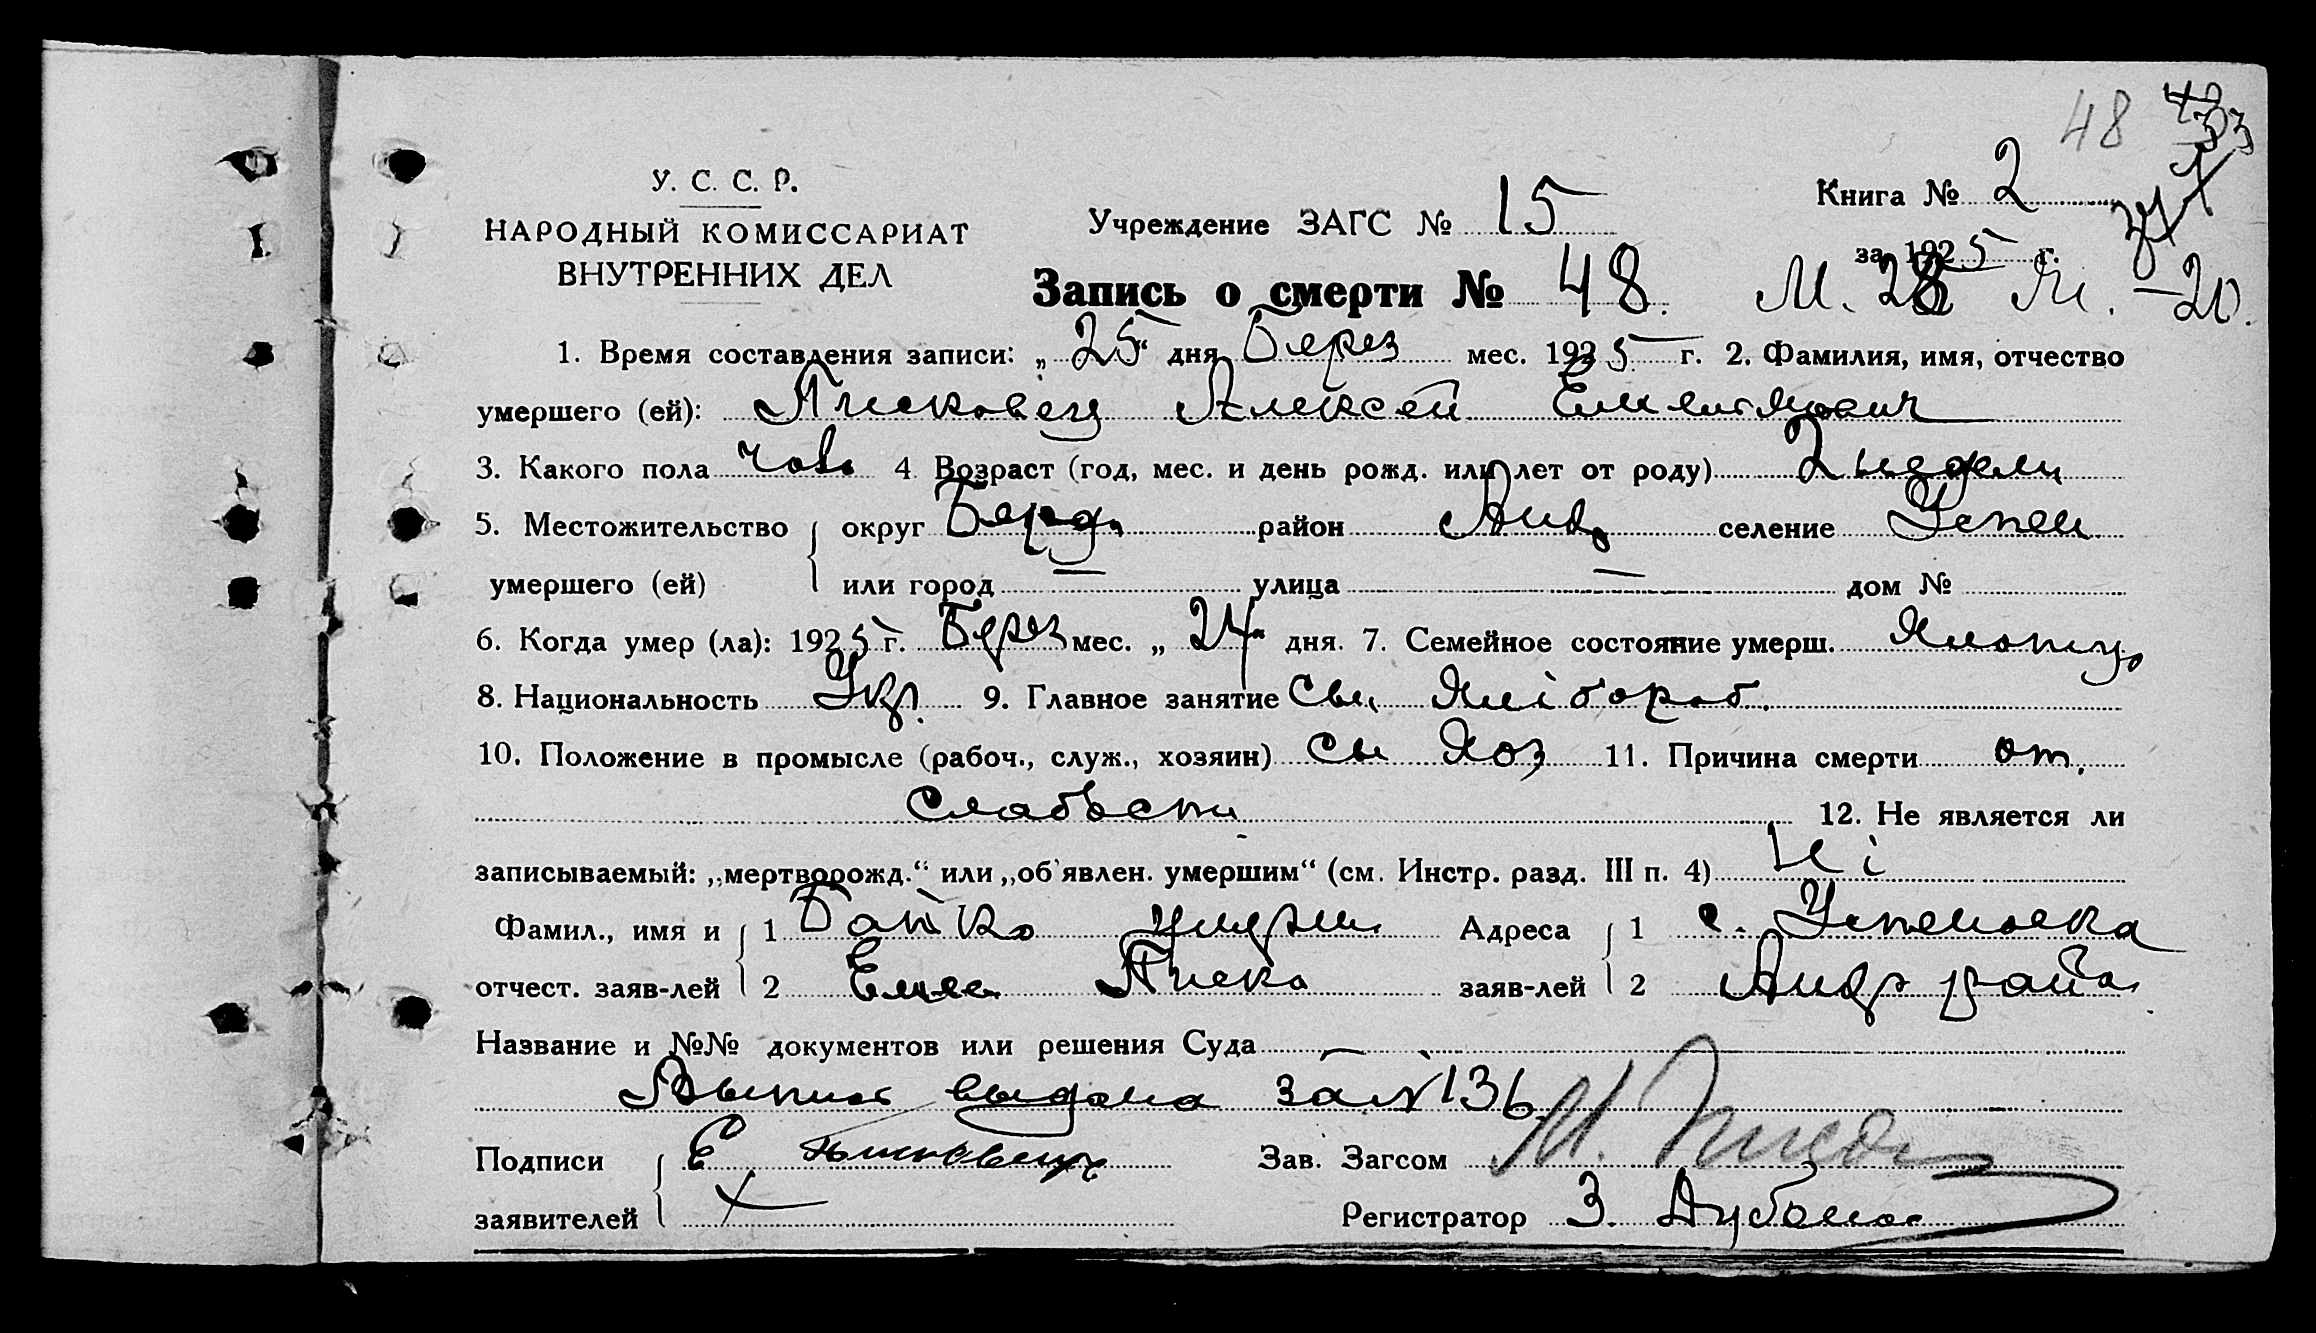 48
У. С. С. Р.
НАРОДНЫЙ КОМИССАРИАТ
ВНУТРЕННИХ ДЕЛ
Учреждение ЗАГС № 15
Книга № 2
за 1925 г.
Запись о смерти № 48. М. 28 -20.
1. Время составления записи: „25“ дня Берез мес. 1925 г. 2. Фамилия, имя, отчество
умершего (ей): Писковец Алексей
3. Какого пола чол. 4. Возраст (год, мес. и день рожд. или лет от роду) 2 недели
5. Местожительство округ Берд. район Анд селение Успен.
умершего (ей) или город — улица — дом №
6. Когда умер (ла): 1925 г. Берез мес. „24“ дня. 7. Семейное состояние умерш.
8. Национальность Укр. 9. Главное занятие Сын Хлібороб.
10. Положение в промысле (рабоч., служ., хозяин) сы Хоз 11. Причина смерти от.
Слабости
12. Не является ли
записываемый: „мертворожд.“ или „об'явлен. умершим“ (см. Инстр. разд. III п. 4) Ні
Фамил., имя и 1 Батько Адреса 1 с. Успеновка
отчест. заяв-лей 2 заяв-лей 2 Андр района
Название и №№ документов или решения Суда
выдана за № 136
Подписи Е. Зав. Загсом М.
заявителей Х Регистратор З.